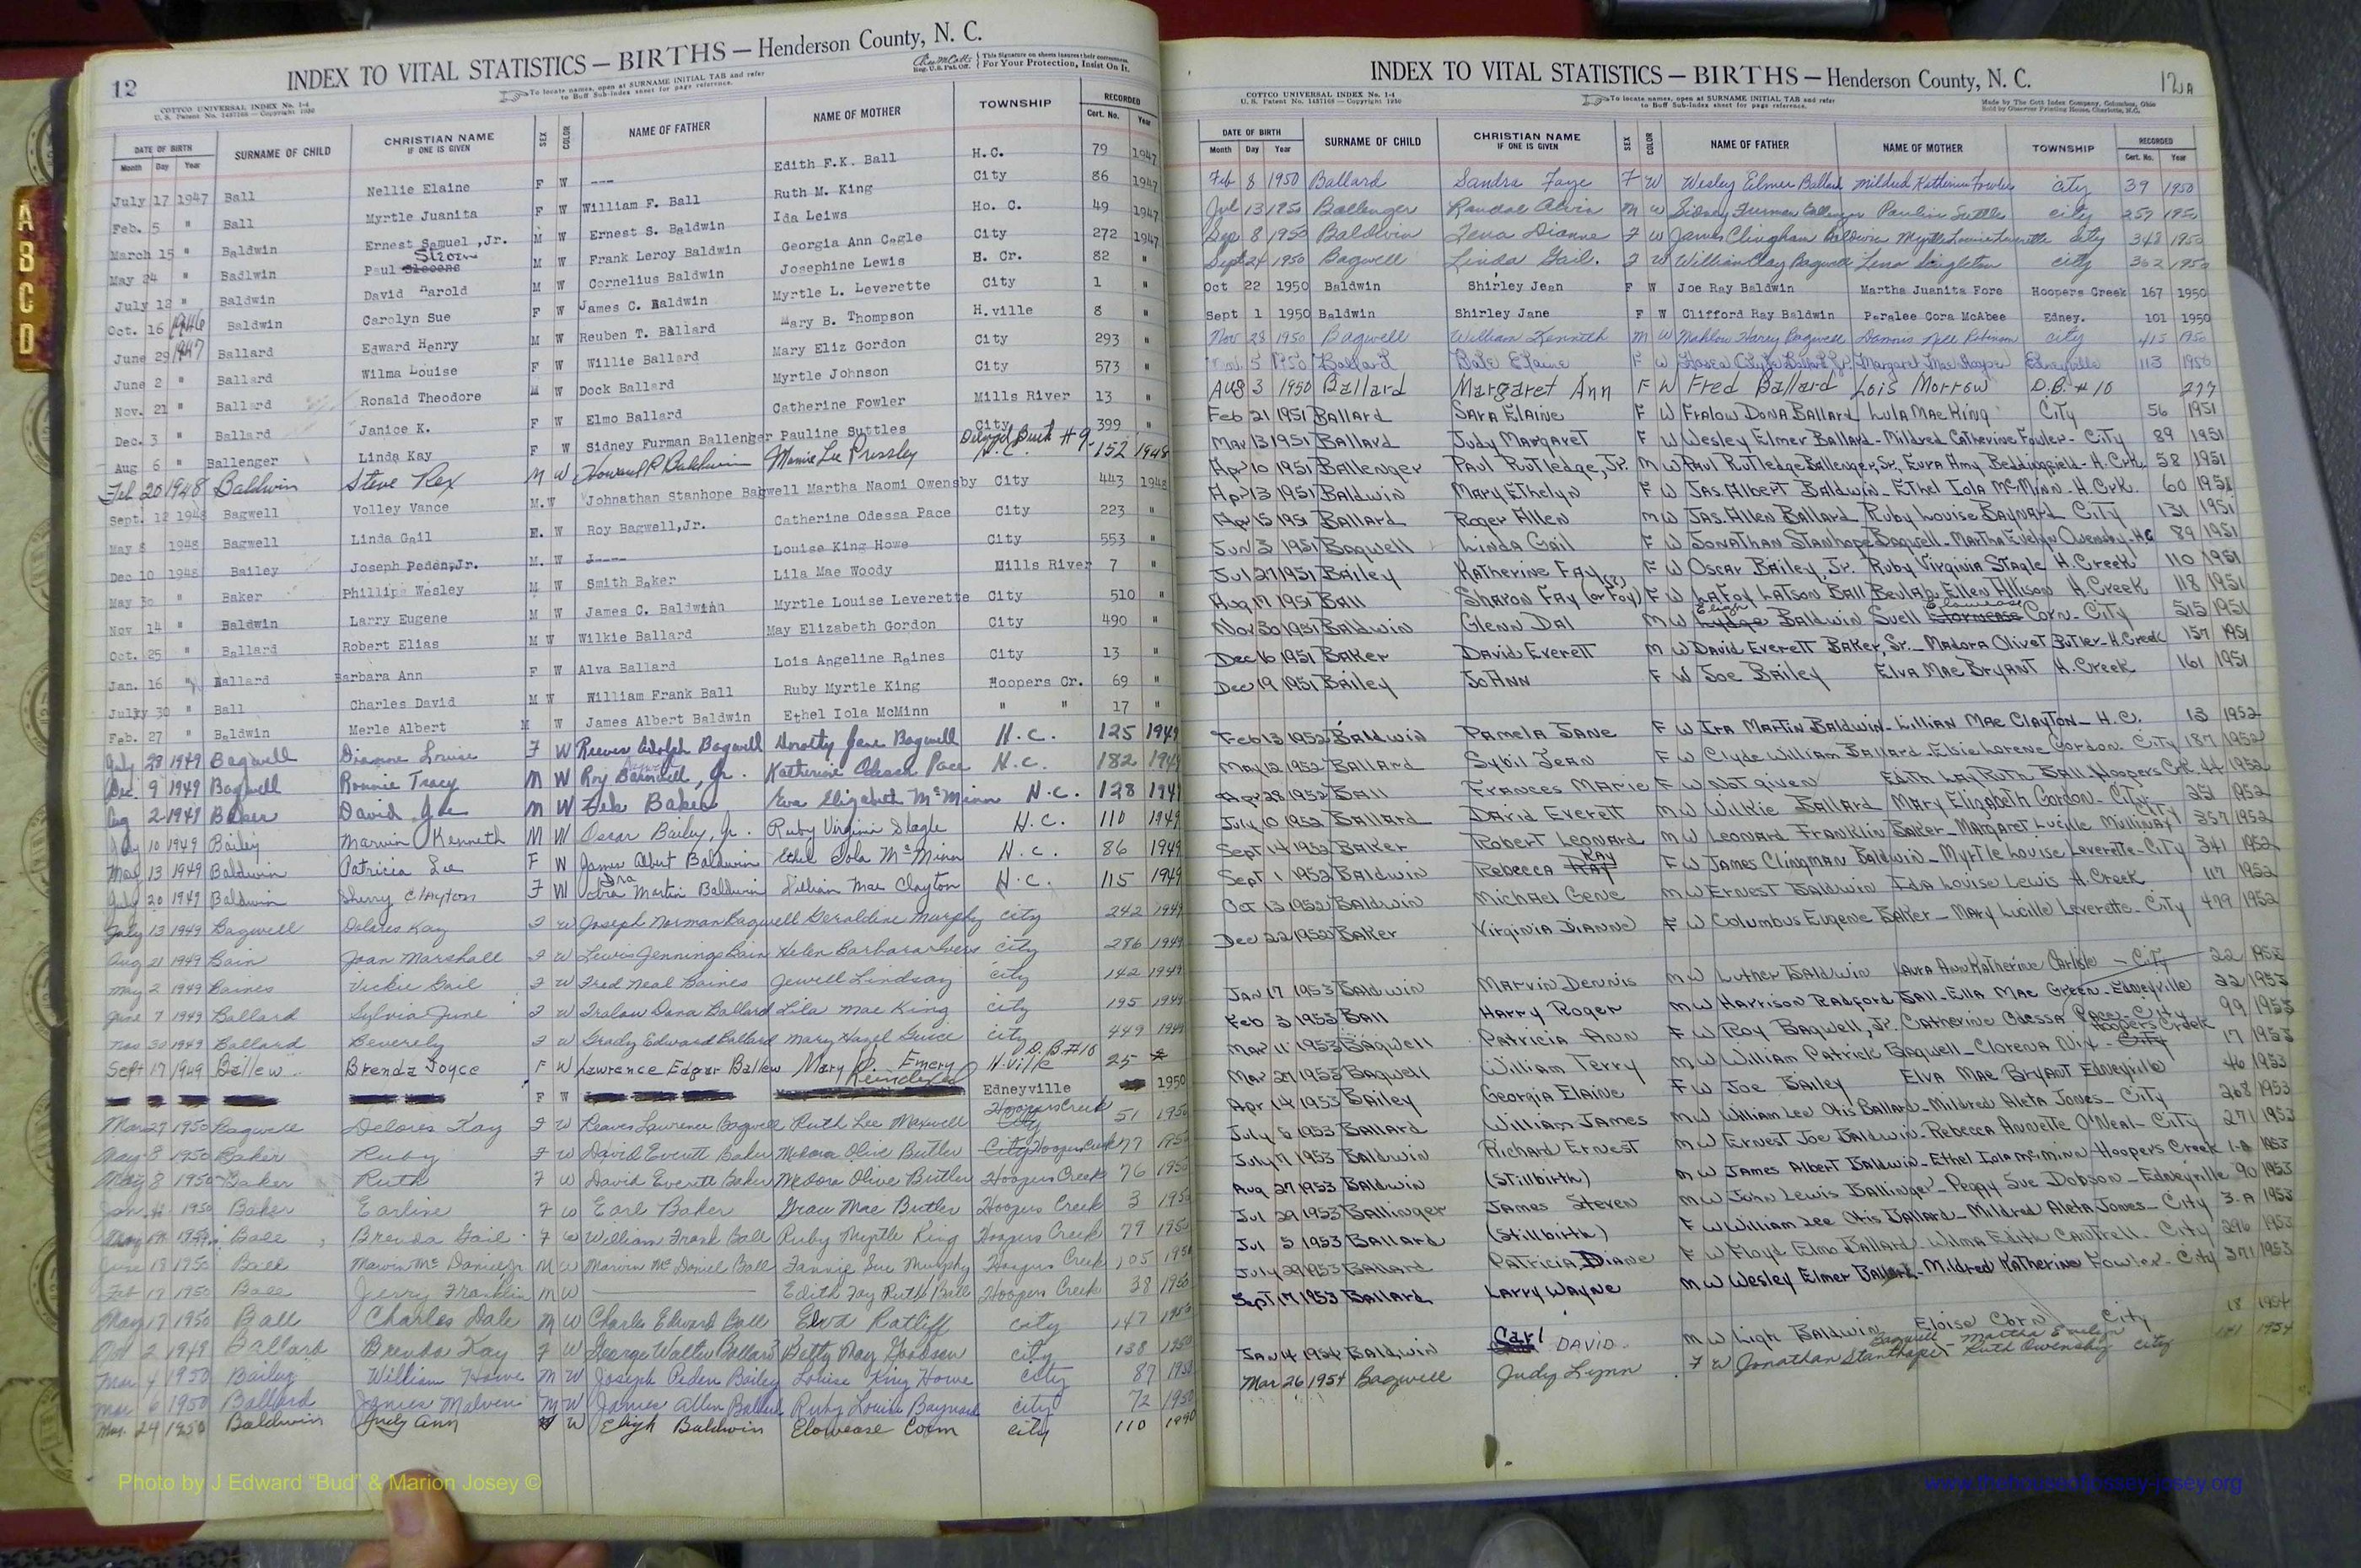 12
INDEX TO VITAL STATISTICS — BIRTHS — Henderson County, N. C.
COTTCO UNIVERSAL INDEX No. 1-4
U. S. Patent No. 1457166 — Copyright 1930
To locate names, open at SURNAME INITIAL TAB and refer
to Buff Sub-Index sheet for page reference.
Reg. U.S. Pat. Off.
This Signature on sheets insures their correctness.
For Your Protection, Insist On It.
DATE OF BIRTH SURNAME OF CHILD CHRISTIAN NAME IF ONE IS GIVEN SEX COLOR NAME OF FATHER NAME OF MOTHER TOWNSHIP RECORDED
Month Day Year Cert. No. Year
July 17 1947 Ball Nellie Elaine F W --- Edith F.K. Ball H.C. 79 1947
Feb. 5 " Ball Myrtle Juanita F W William F. Ball Ruth M. King City 86 1947
March 15 " Baldwin Ernest Samuel ,Jr. M W Ernest S. Baldwin Ida Leiws Ho. C. 49 1947
May 24 " Badlwin Paul M W Frank Leroy Baldwin Georgia Ann Cagle City 272 1947
July 12 " Baldwin David Harold M W Cornelius Baldwin Josephine Lewis H. Cr. 82 "
Oct. 16 1946 Baldwin Carolyn Sue F W James C. Baldwin Myrtle L. Leverette City 1 "
June 29 1947 Ballard Edward Henry M W Reuben T. Ballard Mary B. Thompson H.ville 8 "
June 2 " Ballard Wilma Louise F W Willie Ballard Mary Eliz Gordon City 293 "
Nov. 21 " Ballard Ronald Theodore M W Dock Ballard Myrtle Johnson City 573 "
Dec. 3 " Ballard Janice K. F W Elmo Ballard Catherine Fowler Mills River 13 "
Aug 6 " Ballenger Linda Kay F W Sidney Furman Ballenger Pauline Suttles City 399 "
Feb 20 1948 Baldwin Steve Rex M W Howard R Baldwin Mamie Lee Pressley H.C. 152 1948
Sept. 12 1948 Bagwell Volley Vance M.W Johnathan Stanhope Bagwell Martha Naomi Owensby City 443 1948
May 8 1948 Bagwell Linda Gail W Roy Bagwell,Jr. Catherine Odessa Pace City 223 "
Dec 10 1948 Bailey Joseph Peden,Jr. M. W J---- Louise King Howe City 553 "
May 30 " Baker Phillips Wesley M W Smith Baker Lila Mae Woody Mills River 7 "
Nov 14 " Baldwin Larry Eugene M W James C. Baldwinn Myrtle Louise Leverette City 510 "
Oct. 25 " Ballard Robert Elias M W Wilkie Ballard May Elizabeth Gordon City 490 "
Jan. 16 " Ballard Barbara Ann F W Alva Ballard Lois Angeline Raines City 13 "
July 30 " Ball Charles David M W William Frank Ball Ruby Myrtle King Hoopers Cr. 69 "
Feb. 27 " Baldwin Merle Albert M W James Albert Baldwin Ethel Iola McMinn " " 17 "
July 28 1949 Bagwell Dianne Louise F W Reeves Adolph Bagwell Dorothy Jane Bagwell H.C. 125 1949
Dec. 9 1949 Bagwell Ronnie Tracy M W Roy Jr. Katherine Odessa Pace H.C. 182 1949
Aug 2 1949 Baker David Joe M W Zeb Baker Eva Elizabeth McMinn H.C. 128 1949
July 10 1949 Bailey Marvin Kenneth M W Oscar Bailey, Jr. Ruby Virginia Slagle H.C. 110 1949
May 13 1949 Baldwin Patricia Lee F W James Albert Baldwin Ethel Iola McMinn H.C. 86 1949
July 20 1949 Baldwin Sherry Clayton F W Ira Martin Baldwin Lillian Mae Clayton H.C. 115 1949
July 13 1949 Bagwell Delores Kay F W Joseph Norman Bagwell Geraldine Murphy city 242 1949
Aug 21 1949 Bain Joan Marshall F W Lewis Jennings Bain Helen Barbara city 286 1949
May 2 1949 Baines Vickie Gail F W Fred Neal Baines Jewell Lindsay city 142 1949
June 7 1949 Ballard Sylvia June F W Fralow Dona Ballard Lila Mae King city 195 1949
Nov 30 1949 Ballard Beverely F W Grady Edward Ballard Mary Hazel Guice city 449 1949
Sept 17 1949 Ballew Brenda Joyce F W Lawrence Edgar Ballew Mary D. Emery H.Ville D.B.#10 25
F W Edneyville 1950
Mar 27 1950 Bagwell Delores Kay F W Reaves Lawrence Bagwell Ruth Lee Maxwell Hoopers Creek 51 1950
May 8 1950 Baker Ruby F W David Everett Baker Medora Olive Butler City Hoopers Creek 77 1950
May 8 1950 Baker Ruth F W David Everett Baker Medora Olive Butler Hoopers Creek 76 1950
Jan 1950 Baker Earline F W Earl Baker Grace Mae Butler Hoopers Creek 3 1950
May 18 1950 Ball Brenda Gail F W William Frank Ball Ruby Myrtle King Hoopers Creek 79 1950
June 18 1950 Ball Marvin McDaniel Jr M W Marvin McDaniel Ball Fannie Sue Murphy Hoopers Creek 105 1950
Feb 17 1950 Ball Jerry Franklin M W Edith Fay Ruth Ball Hoopers Creek 38 1950
May 17 1950 Ball Charles Dale M W Charles Edward Ball Ratliff city 147 1950
Oct 2 1949 Ballard Brenda Kay F W George Walter Ballard Betty May Goodson city 138 1950
Mar 4 1950 Bailey William Howe M W Joseph Peden Bailey Louise King Howe city 87 1950
Mar 6 1950 Ballard James Malvin M W James Allen Ballard Ruby Louise Baynard city 72 1950
Mar. 24 1950 Baldwin Judy Ann W Eligh Baldwin Elowease Corn city 110 1950
Photo by J Edward "Bud" & Marion Josey ©
INDEX TO VITAL STATISTICS — BIRTHS — Henderson County, N. C.
12A
COTTCO UNIVERSAL INDEX No. 1-4
U. S. Patent No. 1457166 — Copyright 1930
To locate names, open at SURNAME INITIAL TAB and refer
to Buff Sub-Index sheet for page reference.
Made by The Cott Index Company, Columbus, Ohio
Sold by Observer Printing House, Charlotte, N.C.
DATE OF BIRTH SURNAME OF CHILD CHRISTIAN NAME IF ONE IS GIVEN SEX COLOR NAME OF FATHER NAME OF MOTHER TOWNSHIP RECORDED
Month Day Year Cert. No. Year
Feb 8 1950 Ballard Sandra Faye F W Wesley Elmer Ballard Mildred Katherine Fowler city 39 1950
Jul 13 1950 Ballenger Randal Alvin M W Sidney Furman Ballenger Pauline Suttle city 259 1950
Sep 8 1950 Baldwin Lena Dianne F W James Clingham Baldwin Myrtle Louise Leverette City 348 1950
Sept 24 1950 Bagwell Linda Gail. F W William Clay Bagwell Lena Singleton city 362 1950
Oct 22 1950 Baldwin Shirley Jean F W Joe Ray Baldwin Martha Juanita Fore Hoopers Creek 167 1950
Sept 1 1950 Baldwin Shirley Jane F W Clifford Ray Baldwin Peralee Cora McAbee Edney. 101 1950
Nov 28 1950 Bagwell William Kenneth M W Mahlow Harey Bagwell Damous Nell Robinson city 415 1950
5 1950 Ballard Elaine F W Margaret Mae Edneyville 113 1950
Aug 3 1950 Ballard Margaret Ann F W Fred Ballard Lois Morrow D.B. #10 277
Feb 21 1951 Ballard Sara Elaine F W Fralow Dona Ballard Lula Mae King City 56 1951
Mar 13 1951 Ballard Judy Margaret F W Wesley Elmer Ballard - Mildred Catherine Fowler - City 89 1951
Apr 10 1951 Ballenger Paul Rutledge, Jr. M W Paul Rutledge Ballenger, Sr. Eura Amy Beddingfield - H.Crk. 58 1951
Apr 13 1951 Baldwin Mary Ethelyn F W Jas. Albert Baldwin - Ethel Iola McMinn - H.Crk. 60 1951
Apr 15 1951 Ballard Roger Allen M W Jas. Allen Ballard Ruby Louise Baynard City 131 1951
Jun 3 1951 Bagwell Linda Gail F W Jonathan Stanhope Bagwell - Martha Evelyn Owensby - H.C 89 1951
Jul 27 1951 Bailey Katherine Fay F W Oscar Bailey, Jr. Ruby Virginia Stagle H.Creek 110 1951
Aug 17 1951 Ball Sharon Fay (or Foy) (?) F W LaFoy Latson Ball Beulah Ellen Allison H.Creek 118 1951
Nov 30 1951 Baldwin Glenn Dal M W Eligh Baldwin Suell Corn - City 515 1951
Dec 6 1951 Baker David Everett M W David Everett Baker, Sr. - Madora Olivet Butler - H.Creek 157 1951
Dec 19 1951 Bailey JoAnn F W Joe Bailey Elva Mae Bryant H.Creek 161 1951
Feb 13 1952 Baldwin Pamela Jane F W Ira Martin Baldwin - Lillian Mae Clayton - H.C. 13 1952
May 12 1952 Ballard Sybil Jean F W Clyde William Ballard - Elsie Lorene Gordon - City 187 1952
Apr 28 1952 Ball Frances Marie F W Not given Edith Fay Ruth Ball - Hoopers Crk 44 1952
July 10 1952 Ballard David Everett M W Wilkie Ballard Mary Elizabeth Gordon - City 251 1952
Sept 14 1952 Baker Robert Leonard M W Leonard Franklin Baker - Margaret Lucille Mullinax City 357 1952
Sept 1 1952 Baldwin Rebecca Kay F W James Clingman Baldwin - Myrtle Louise Leverette - City 341 1952
Oct 13 1952 Baldwin Michael Gene M W Ernest Baldwin Ida Louise Lewis H.Creek 117 1952
Dec 22 1952 Baker Virginia Dianne F W Columbus Eugene Baker - Mary Lucille Leverette - City 479 1952
Jan 17 1953 Baldwin Marvin Dennis M W Luther Baldwin Laura Ann Katherine Carlisle - City 22 1953
Feb 3 1953 Ball Harry Roger M W Harrison Radford Ball - Ella Mae Green - Edneyville 22 1953
Mar 11 1953 Bagwell Patricia Ann F W Roy Bagwell, Jr. Catherine Odessa Pace - City 99 1953
Mar 27 1953 Bagwell William Terry M W William Patrick Bagwell - Clorena Nix - City Hoopers Creek 17 1953
Apr 14 1953 Bailey Georgia Elaine F W Joe Bailey Elva Mae Bryant Edneyville 46 1953
July 6 1953 Ballard William James M W William Lee Otis Ballard - Mildred Aleta Jones - City 268 1953
July 7 1953 Baldwin Richard Ernest M W Ernest Joe Baldwin - Rebecca Annette O'Neal - City 271 1953
Aug 27 1953 Baldwin (Stillbirth) M W James Albert Baldwin - Ethel Iola McMinn - Hoopers Creek 1-A 1953
Jul 29 1953 Ballinger James Steven M W John Lewis Ballinger - Peggy Sue Dobson - Edneyville 90 1953
Jul 5 1953 Ballard (Stillbirth) F W William Lee Otis Ballard - Mildred Aleta Jones - City 3-A 1953
July 29 1953 Ballard Patricia Diane F W Floyd Elmo Ballard - Wilma Edith Cantrell - City 296 1953
Sept 17 1953 Ballard Larry Wayne M W Wesley Elmer Ballard - Mildred Katherine Fowler - City 371 1953
Jan 4 1954 Baldwin Carl David M W Ligh Baldwin Eloise Corn City 18 1954
Mar 26 1954 Bagwell Judy Lynn F W Jonathan Stanthope Bagwell - Martha Evelyn Ruth Owensby City 141 1954
www.thehouseofjossey-josey.org
A
B
C
D